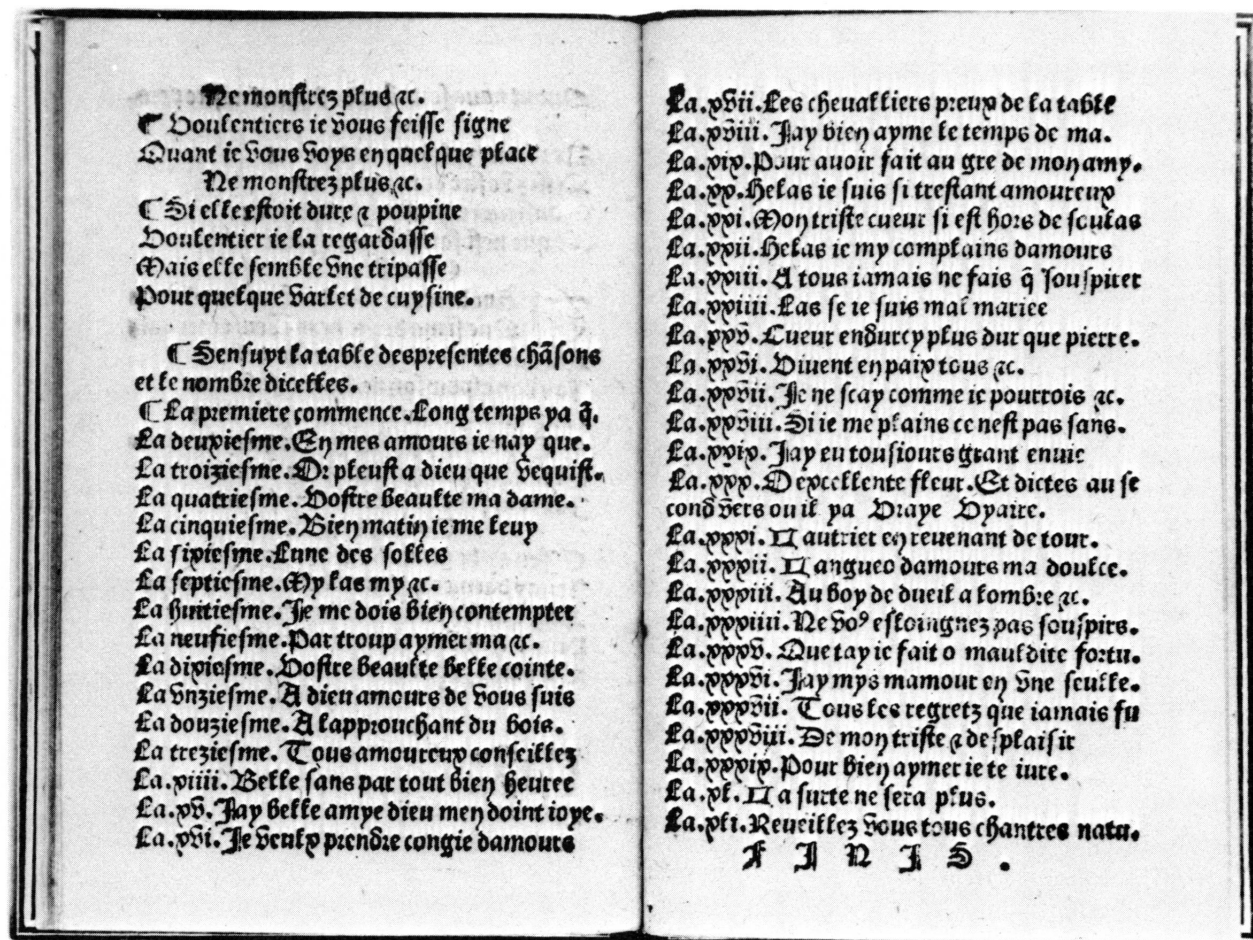 Ne monstrez plus ⁊c.
¶ Voulentiers ie vous feisse signe
Quant ie vous voys en quelque place
Ne monstrez plus ⁊c.
¶ Si elle estoit dure ⁊ poupine
Voulentier ie la regardasse
Mais elle semble vne tripasse
Pour quelque varlet de cuysine.
¶ Sensuyt la table des presentes chãsons
et le nombre dicelles.
¶ La premiere commence. Long temps ya q̃.
La deuxiesme. En mes amours ie nay que.
La troiziesme. Or pleust a dieu que vequist.
La quatriesme. Vostre beaulte ma dame.
La cinquiesme. Bien matin ie me leuy
La sixiesme. Lune des folles
La septiesme. My las my ⁊c.
La huitiesme. Je me dois bien contempter
La neufiesme. Par troup aymer ma ⁊c.
La dixiesme. Vostre beaulte belle cointe.
La vnziesme. A dieu amours de vous suis
La douziesme. A lapprouchant du bois.
La treziesme. Tous amoureux conseillez
La.xiiii. Belle sans par tout bien heuree
La.xv. Jay belle amye dieu men doint ioye.
La.xvi. Je veulx prendre congie damours
La.xvii. Les chevalliers preux de la table
La.xviii. Jay bien ayme le temps de ma.
La.xix. Pour auoir fait au gre de mon amy.
La.xx. Helas ie suis si trestant amoureux
La.xxi. Mon triste cueur si est hors de soulas
La.xxii. Helas ie my complains damours
La.xxiii. A tous iamais ne fais q̃ souspirer
La.xxiiii. Las se ie suis mal mariee
La.xxv. Cueur endurcy plus dur que pierre.
La.xxvi. Vivent en paix tous ⁊c.
La.xxvii. Je ne scay comme ie pourrois ⁊c.
La.xxviii. Si ie me plains ce nest pas sans.
La.xxix. Jay eu tousiours grant enuie
La.xxx. O excellente fleur. Et dictes au se
cond vers ou il ya Vraye Vyaire.
La.xxxi. Lautrier en revenant de tour.
La.xxxii. Langueo damours ma doulce.
La.xxxiii. Au boy de dueil a lombre ⁊c.
La.xxxiiii. Ne voꝰ esloingnez pas souspirs.
La.xxxv. Que tay ie fait o mauldite fortu.
La.xxxvi. Jay mys mamour en vne seulle.
La.xxxvii. Tous les regretz que iamais fu
La.xxxviii. De mon triste ⁊ desplaisir
La.xxxix. Pour bien aymer ie te iure.
La.xl. La surte ne sera plus.
La.xli. Reveillez vous tous chantres natu.
FINIS.